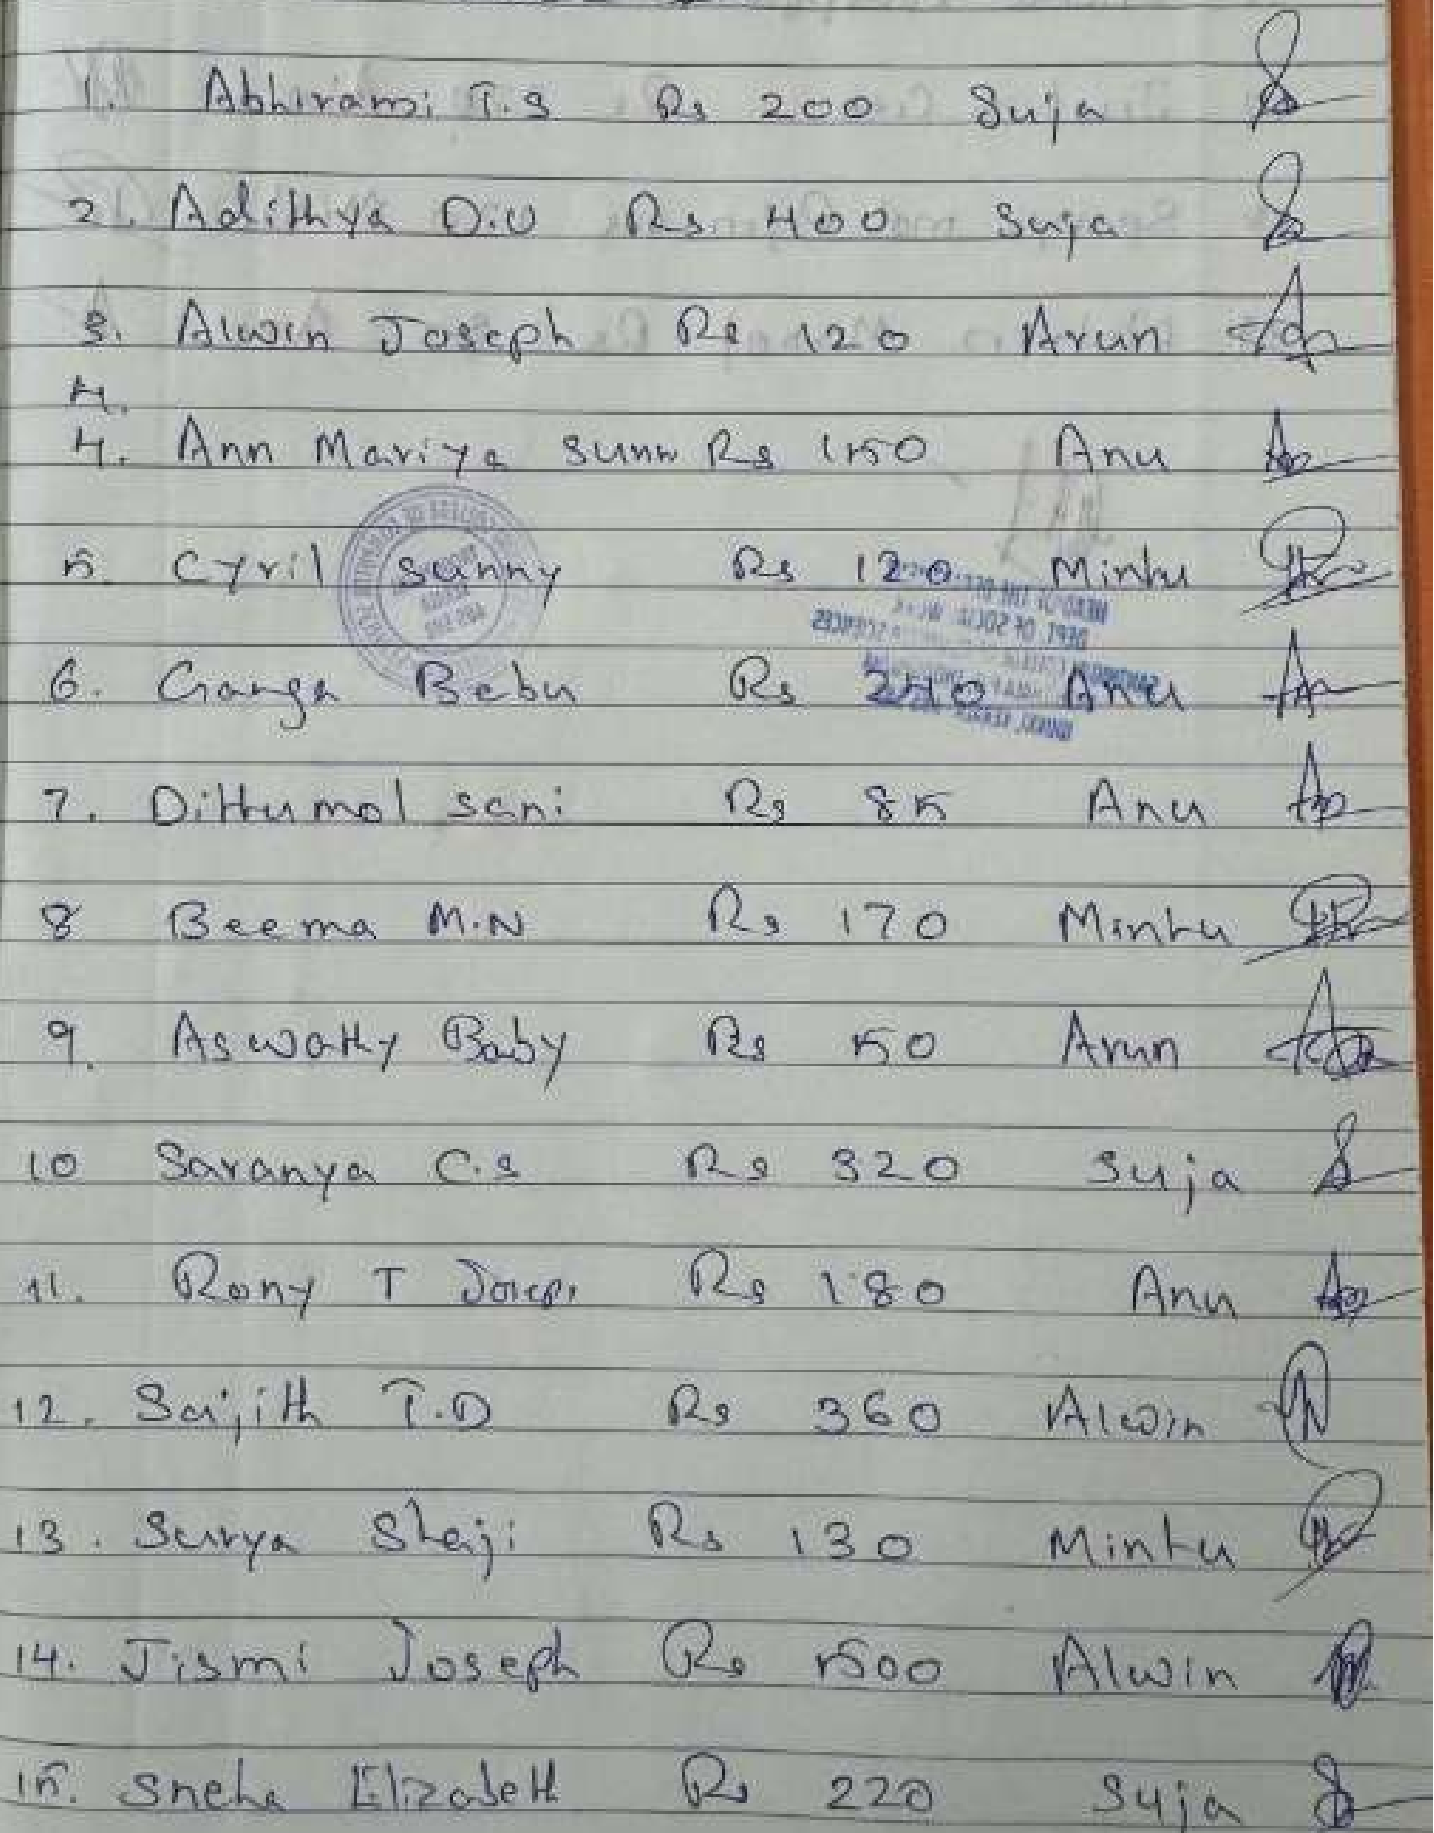 1. Abhirami T.S Rs 200 Suja
2. Adithya D.U Rs 400 Suja
3. Alwin Joseph Rs 120 Arun
4.
4. Ann Mariya Sunn Rs 150 Anu
5. Cyril Sanny Rs 120 Mintu
6. Ganga Babu Rs 240 Anu
7. Dittumol sani Rs 85 Anu
8 Beema M.N Rs 170 Mintu
9. Aswathy Baby Rs 50 Arun
10 Saranya C.S Rs 320 Suja
11. Rony T Rs 180 Anu
12. Saijith T.D Rs 360 Alwin
13. Surya Shaji Rs 130 Mintu
14. Jismi Joseph Rs 500 Alwin
15. Sneha Elizabeth Rs 220 Suja